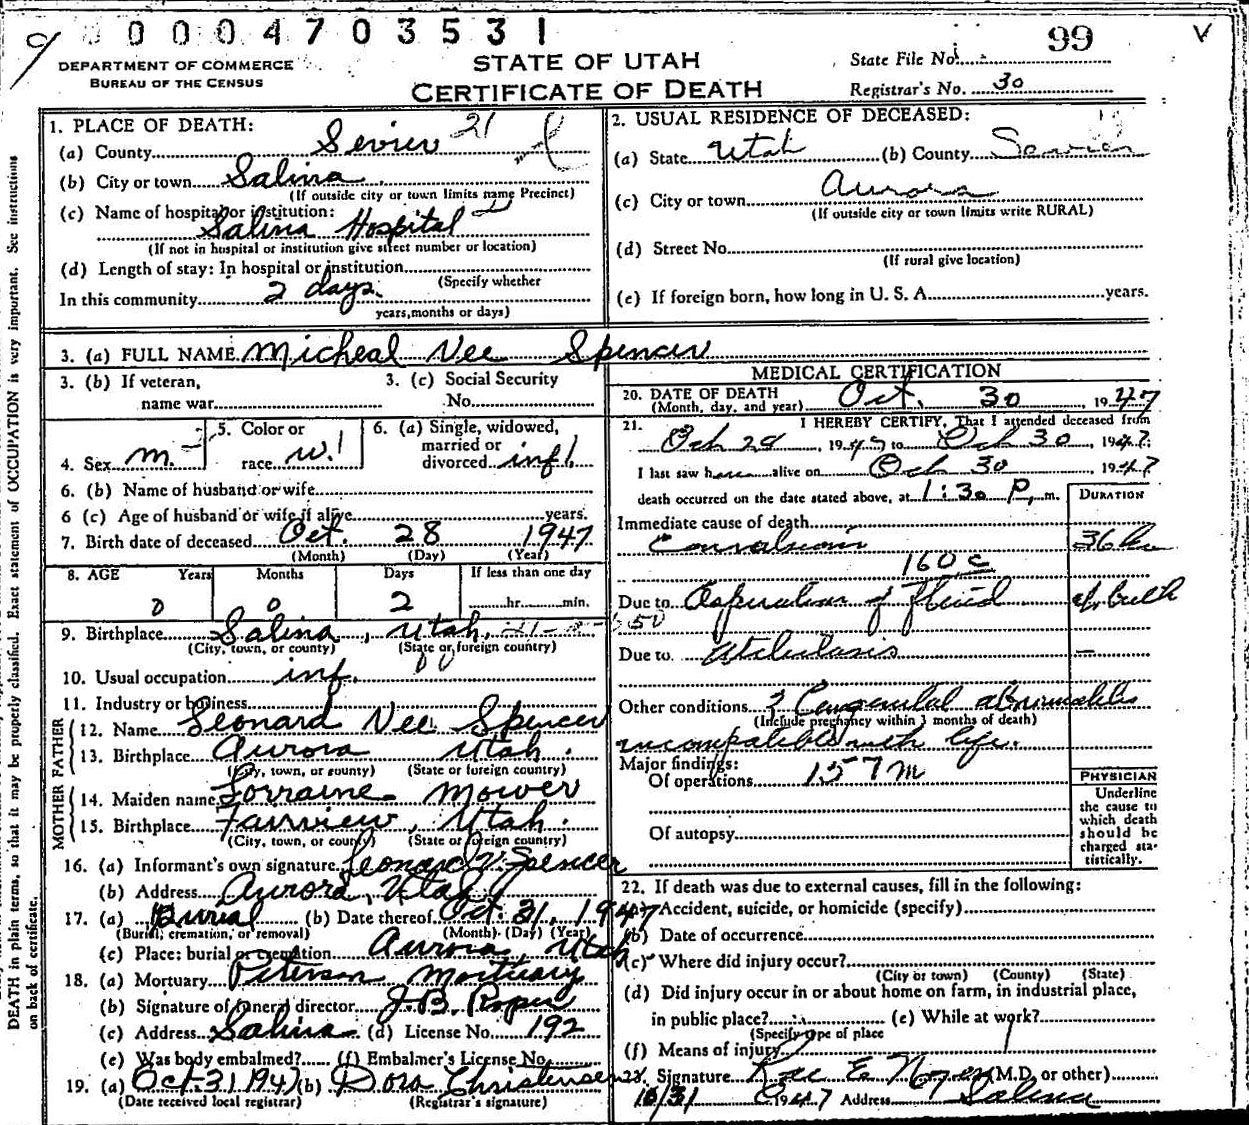 0004703531
99
DEPARTMENT OF COMMERCE
BUREAU OF THE CENSUS
STATE OF UTAH
CERTIFICATE OF DEATH
State File No.
Registrar's No. 30
1. PLACE OF DEATH: 21
(a) County Sevier
(b) City or town Salina
(If outside city or town limits name Precinct)
(c) Name of hospital or institution:
Salina Hospital
(If not in hospital or institution give street number or location)
(d) Length of stay: In hospital or institution
(Specify whether
In this community 2 days.
years, months or days)
2. USUAL RESIDENCE OF DECEASED:
(a) State Utah (b) County Sevier
(c) City or town Aurora
(If outside city or town limits write RURAL)
(d) Street No.
(If rural give location)
(e) If foreign born, how long in U. S. A. years.
3. (a) FULL NAME Micheal Vee Spencer
3. (b) If veteran,
name war
3. (c) Social Security
No.
4. Sex m.
5. Color or
race w.
6. (a) Single, widowed,
married or
divorced inf.
6. (b) Name of husband or wife
6 (c) Age of husband or wife if alive years.
7. Birth date of deceased Oct. 28 1947
(Month) (Day) (Year)
8. AGE Years Months Days If less than one day
0 0 2 hr. min.
9. Birthplace Salina, Utah.
(City, town, or county) (State or foreign country)
10. Usual occupation inf.
11. Industry or business
FATHER
12. Name Leonard Vee Spencer
13. Birthplace Aurora Utah.
(City, town, or county) (State or foreign country)
MOTHER
14. Maiden name Lorraine Mower
15. Birthplace Fairview, Utah.
(City, town, or county) (State or foreign country)
16. (a) Informant's own signature Leonard V. Spencer
(b) Address Aurora, Utah
17. (a) Burial (b) Date thereof Oct. 31, 1947
(Burial, cremation, or removal) (Month) (Day) (Year)
(c) Place: burial or cremation Aurora, Utah
18. (a) Mortuary Peterson Mortuary
(b) Signature of funeral director J.B. Roper
(c) Address Salina (d) License No. 192
(e) Was body embalmed? (f) Embalmer's License No.
19. (a) Oct. 31 1947 (b) Dora Christensen
(Date received local registrar) (Registrar's signature)
MEDICAL CERTIFICATION
20. DATE OF DEATH
(Month, day, and year) Oct. 30, 1947
21. I HEREBY CERTIFY, That I attended deceased from
Oct 28, 1947 to Oct 30, 1947.
I last saw h alive on Oct 30 1947
death occurred on the date stated above, at 1:30 P. m.
DURATION
Immediate cause of death
Convulsions 36 hr
160c
Due to Aspiration of fluid at birth
Due to Atelectasis -
Other conditions ? Congenital abnormalities
(Include pregnancy within 3 months of death)
incompatible with life.
Major findings:
Of operations 157m
Of autopsy
PHYSICIAN
Underline
the cause to
which death
should be
charged sta-
tistically.
22. If death was due to external causes, fill in the following:
(a) Accident, suicide, or homicide (specify)
(b) Date of occurrence
(c) Where did injury occur?
(City or town) (County) (State)
(d) Did injury occur in or about home on farm, in industrial place,
in public place? (e) While at work?
(Specify type of place
(f) Means of injury
23. Signature Rae E Noyes (M.D. or other)
10/31 1947 Address Salina
DEATH in plain terms, so that it may be properly classified. Exact statement of OCCUPATION is very important. See instructions
on back of certificate.